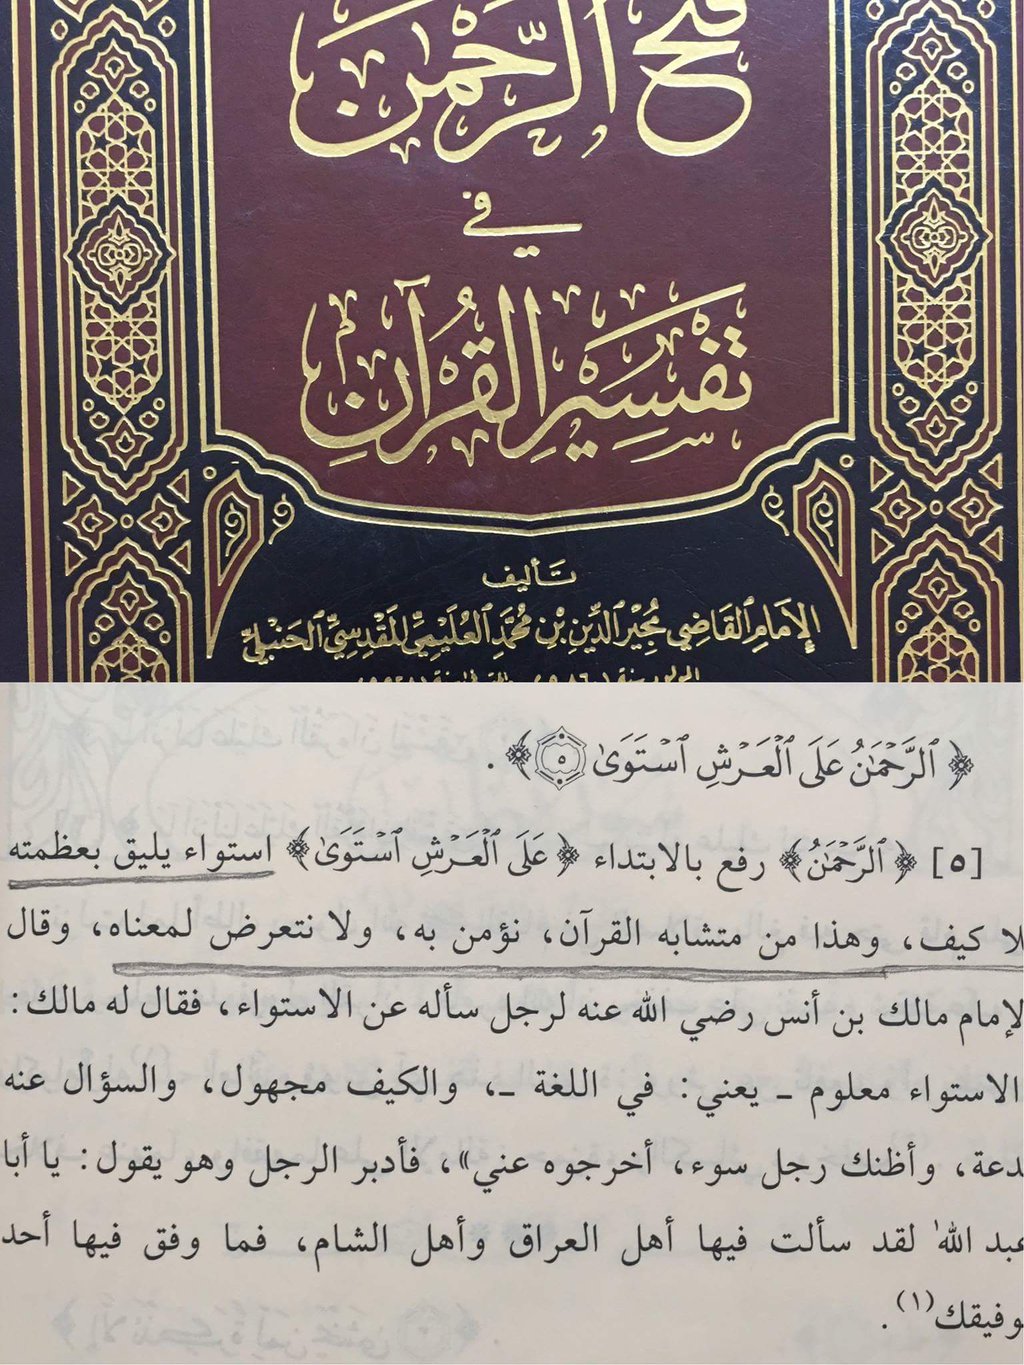 فتح الرحمن
في
تفسير القرآن
تأليف
الإمام القاضي مجير الدين بن محمد العليمي المقدسي الحنبلي
﴿ٱلرَّحْمَٰنُ عَلَى ٱلْعَرْشِ ٱسْتَوَىٰ ۝٥﴾ .
[٥] ﴿ٱلرَّحْمَٰنُ﴾ رفع بالابتداء ﴿عَلَى ٱلْعَرْشِ ٱسْتَوَىٰ﴾ استواء يليق بعظمته
لا كيف، وهذا من متشابه القرآن، نؤمن به، ولا نتعرض لمعناه، وقال
لإمام مالك بن أنس رضي الله عنه لرجل سأله عن الاستواء، فقال له مالك:
الاستواء معلوم ـ يعني: في اللغة ـ، والكيف مجهول، والسؤال عنه
دعة، وأظنك رجل سوء، أخرجوه عني»، فأدبر الرجل وهو يقول: يا أبا
عبد الله لقد سألت فيها أهل العراق وأهل الشام، فما وفق فيها أحد
وفيقك(١).